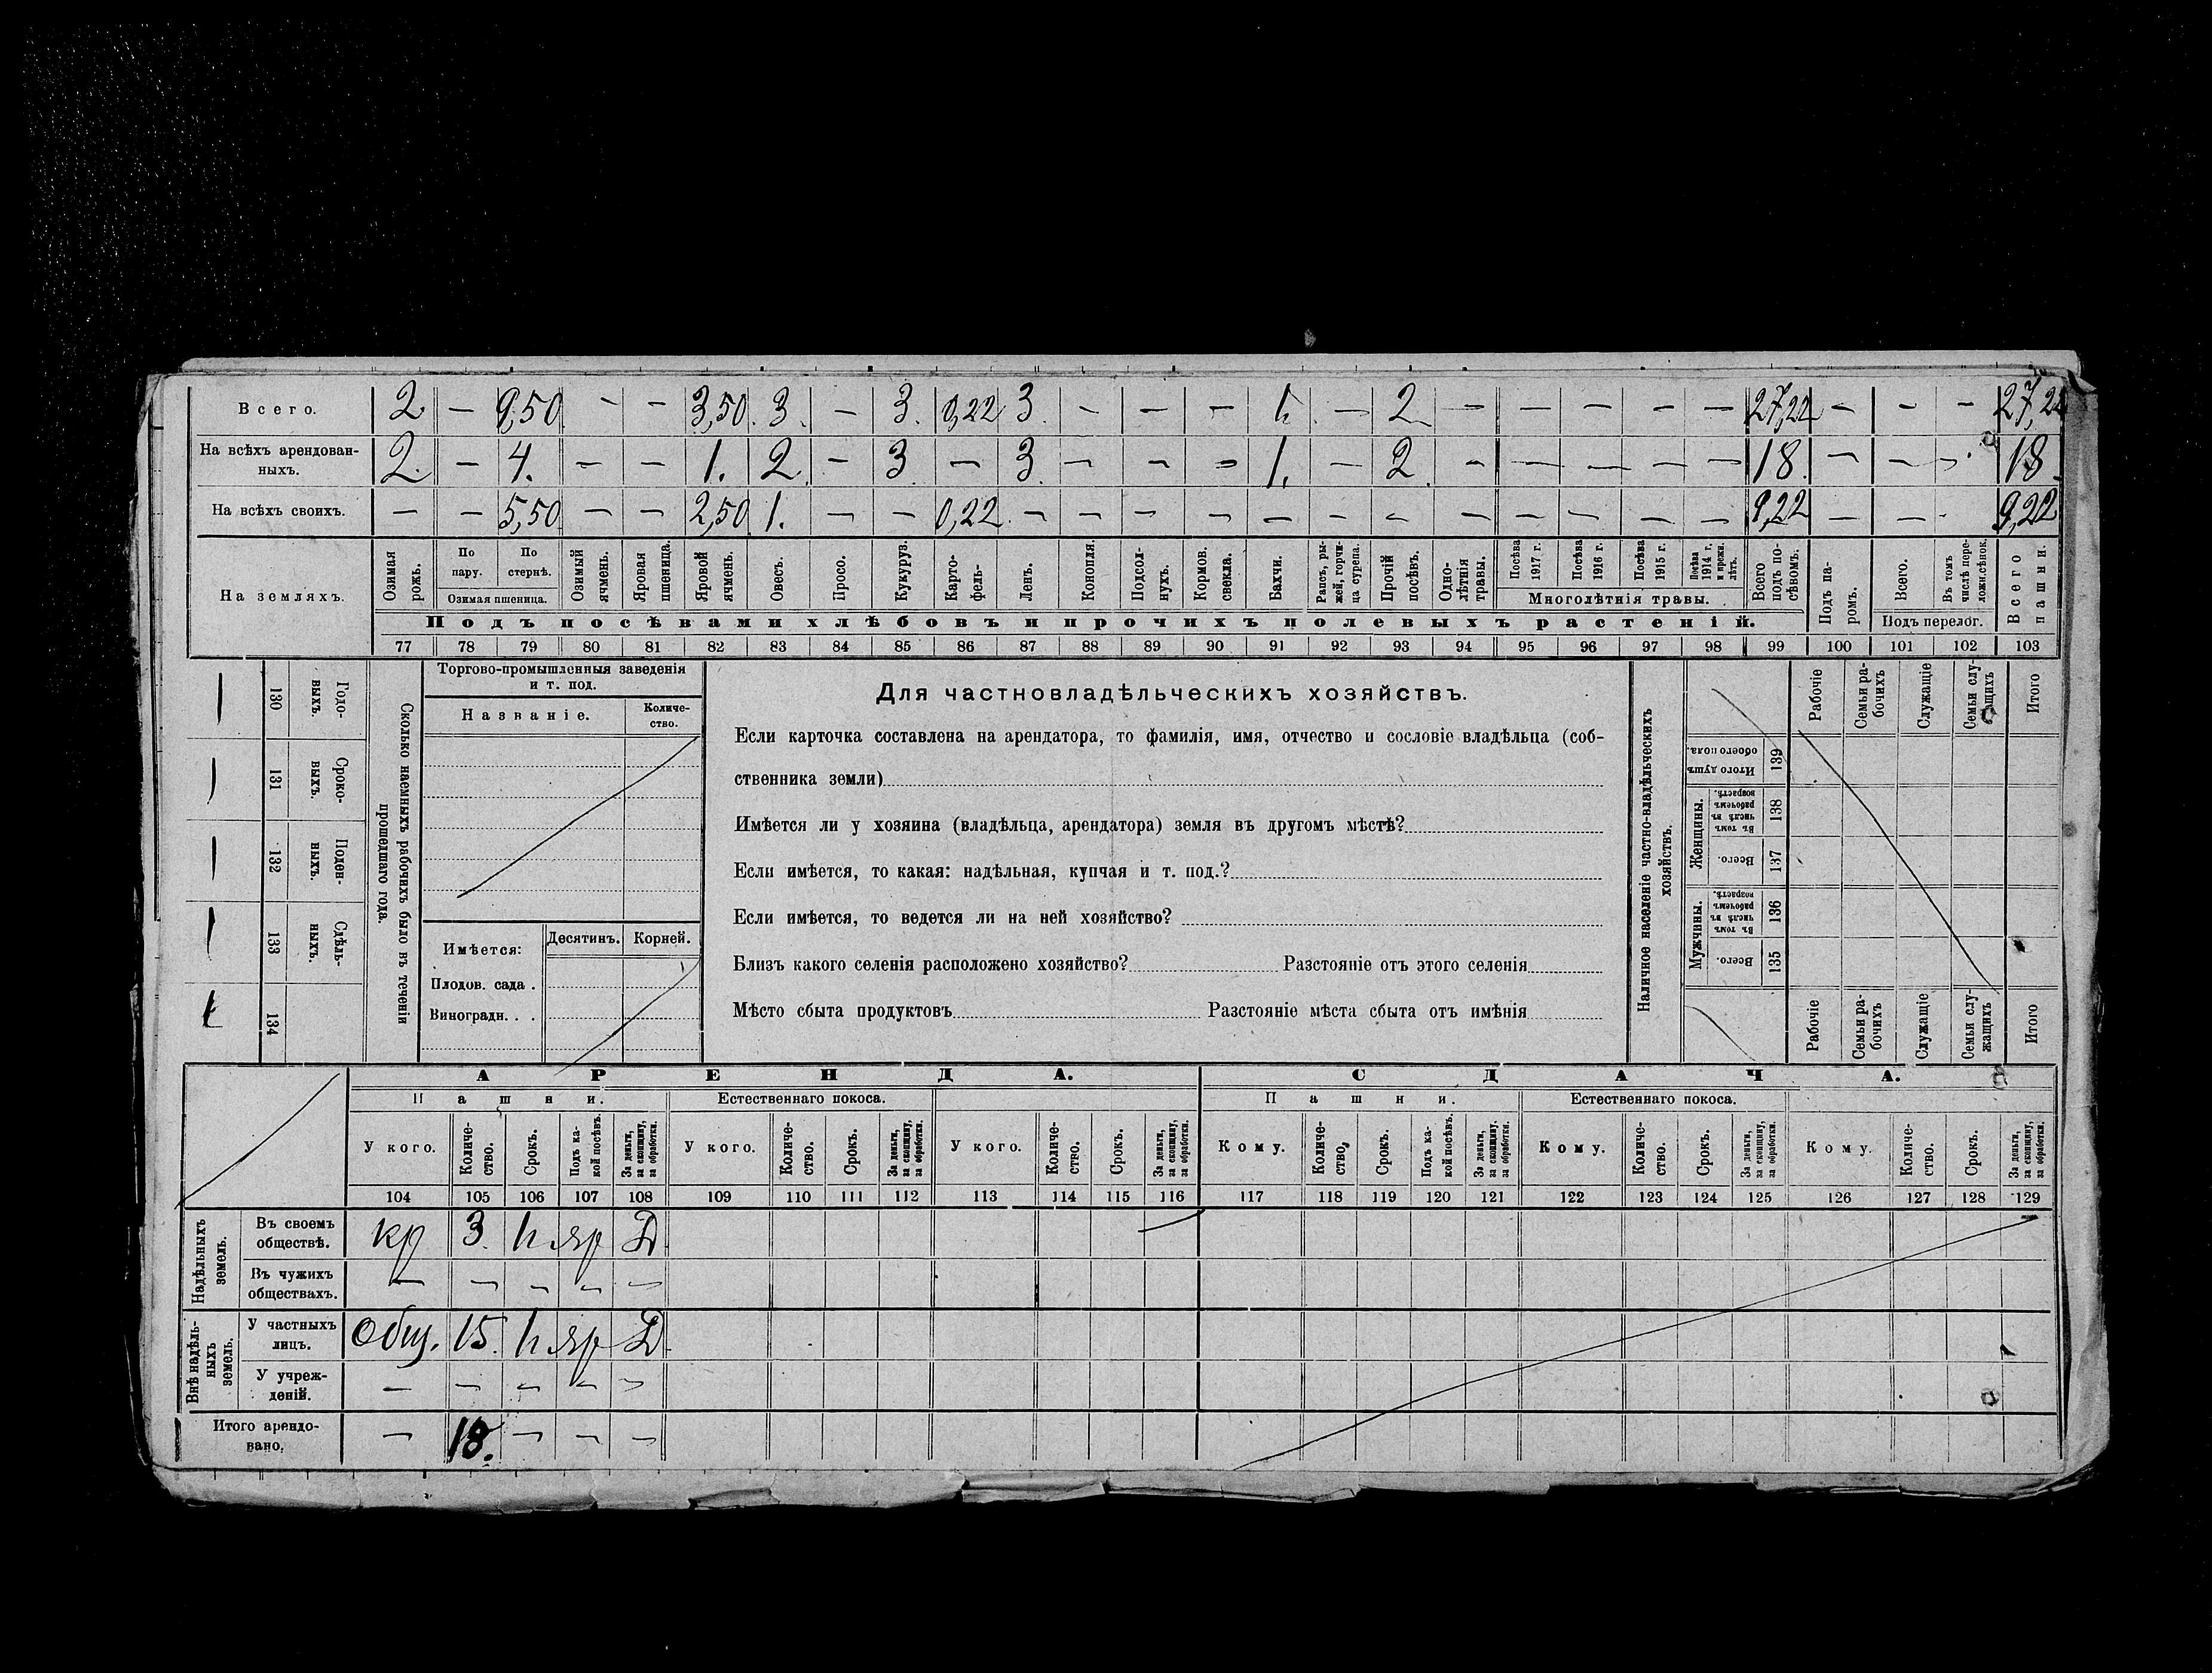 Всего. 2 — 9,50 — — 3,50 3 — 3. 0,22 3 — — — 1. — 2 — — — — — 27,22 — — — 27,22
На всѣхъ арендован-
ныхъ. 2. — 4. — — 1. 2 — 3 — 3. — — — 1. — 2. — — — — — 18. — — — 18.
На всѣхъ своихъ. — — 5,50 — — 2,50 1. — — 0,22 — — — — — — — — — — — — 9,22 — — 9,22
На земляхъ.
Озимая рожь.
По пару.
По стернѣ.
Озимая пшеница.
Озимый ячмень.
Яровая пшеница.
Яровой ячмень.
Овесъ.
Просо.
Кукуруз.
Карто-
фель-
Ленъ.
Конопля.
Подсол-
нухъ.
Кормов. свекла.
Бахчи.
Рапсъ, ры-
жей, горчи-
ца сурепа.
Прочій посѣвъ.
Одно-
лѣтнія травы.
Посѣва 1917 г.
Посѣва 1916 г.
Посѣва 1915 г.
Посѣва 1914 г. и прежн. лѣтъ.
Многолѣтнія травы.
Всего подъ по-
сѣвомъ.
Подъ па-
ромъ.
Всего.
Въ томъ числѣ пере-
ложн.сѣнок.
Подъ перелог.
Всего пашни.
Подъ посѣвами хлѣбовъ и прочихъ полевыхъ растеній.
77 78 79 80 81 82 83 84 85 86 87 88 89 90 91 92 93 94 95 96 97 98 99 100 101 102 103
Сколько наемныхъ рабочихъ было въ теченіи
прошедшаго года.
130 Годо-
выхъ.
131 Сроко-
выхъ.
132 Поден-
ныхъ.
133 Сдѣль-
ныхъ.
134
Торгово-промышленныя заведенія
и т. под.
Названіе. Количе-
ство.
Имѣется: Десятинъ. Корней.
Плодов. сада .
Виноградн. . .
Для частновладѣльческихъ хозяйствъ.
Если карточка составлена на арендатора, то фамилія, имя, отчество и сословіе владѣльца (соб-
ственника земли)
Имѣется ли у хозяина (владѣльца, арендатора) земля въ другомъ мѣстѣ?
Если имѣется, то какая: надѣльная, купчая и т. под.?
Если имѣется, то ведется ли на ней хозяйство?
Близъ какого селенія расположено хозяйство? Разстояніе отъ этого селенія
Мѣсто сбыта продуктовъ Разстояніе мѣста сбыта отъ имѣнія
Наличное населеніе частно-владѣльческихъ
хозяйствъ.
Рабочіе
Семьи ра-
бочихъ
Служащіе
Семьи слу-
жащихъ
Итого
Итого душъ обоего пола. 139
Женщины.
Въ томъ числѣ въ рабочемъ возрастѣ. 138
Всего. 137
Мужчины.
Въ томъ числѣ въ рабочемъ возрастѣ. 136
Всего. 135
Рабочіе
Семьи ра-
бочихъ
Служащіе
Семьи слу-
жащихъ
Итого
АРЕНДА. СДАЧА.
Пашни. Естественнаго покоса. Пашни. Естественнаго покоса.
У кого. Количе-
ство. Срокъ. Подъ ка-
кой посѣвъ. За деньги, за скопщину, за обработки. У кого. Количе-
ство. Срокъ. За деньги, за скопщину, за обработки. У кого. Количе-
ство. Срокъ. За деньги, за скопщину, за обработки. Кому. Количе-
ство. Срокъ. Подъ ка-
кой посѣвъ. За деньги, за скопщину, за обработки. Кому. Количе-
ство. Срокъ. За деньги, за скопщину, за обработки. Кому. Количе-
ство. Срокъ. За деньги, за скопщину, за обработки.
104 105 106 107 108 109 110 111 112 113 114 115 116 117 118 119 120 121 122 123 124 125 126 127 128 129
Надѣльныхъ земель.
Въ своемъ
обществѣ. кр 3. 1 яр Д
Въ чужихъ
обществахъ. — — — — —
Внѣ надѣль-
ныхъ земель.
У частныхъ
лицъ. Общ. 15. 1 яр Д
У учреж-
деній. — — — — —
Итого арендо-
вано. — 18. — — —